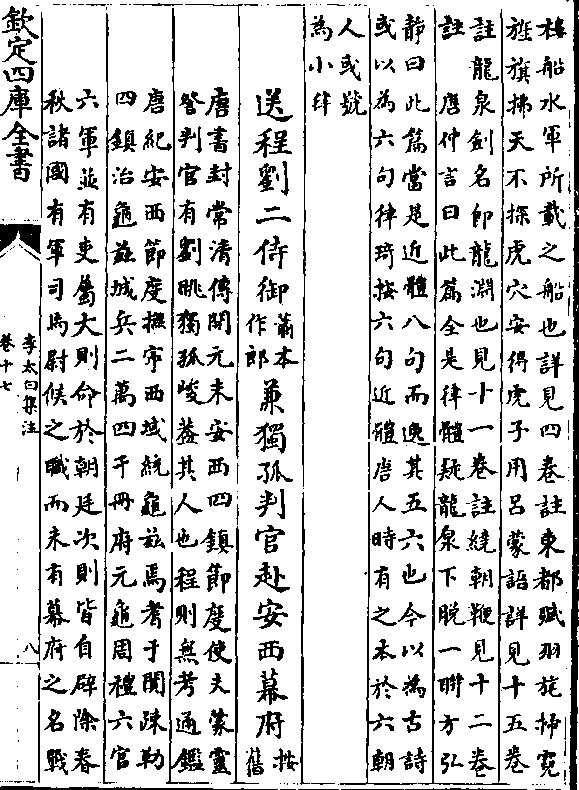 樓船水軍所載之船也詳見四卷註東都賦羽旄掃霓
旌旗拂天不探虎穴安得虎子用呂蒙語詳見十五卷
註龍泉劍名即龍淵也見十一卷註繞朝鞭見十二卷
註　唐仲言曰此篇全是律體疑龍泉下脫一聯方弘
静曰此篇當是近體八句而逸其五六也今以為古詩
或以為六句律琦按六句近體唐人時有之本於六朝
人或號
為小律
送程劉二侍御蕭本作郎兼獨孤判官赴安西幕府按舊
唐書封常清傳開元末安西四鎮節度使夫蒙靈
詧判官有劉眺獨孤峻葢其人也程則無考通鑑
唐紀安西節度撫寧西域統龜兹焉耆于闐疎勒
四鎮治龜兹城兵二萬四千冊府元龜周禮六官
六軍並有吏屬大則命於朝廷次則皆自辟除春
秋諸國有軍司馬尉候之職而未有幕府之名戰
欽定四庫全書
李太白集注
卷十七
八